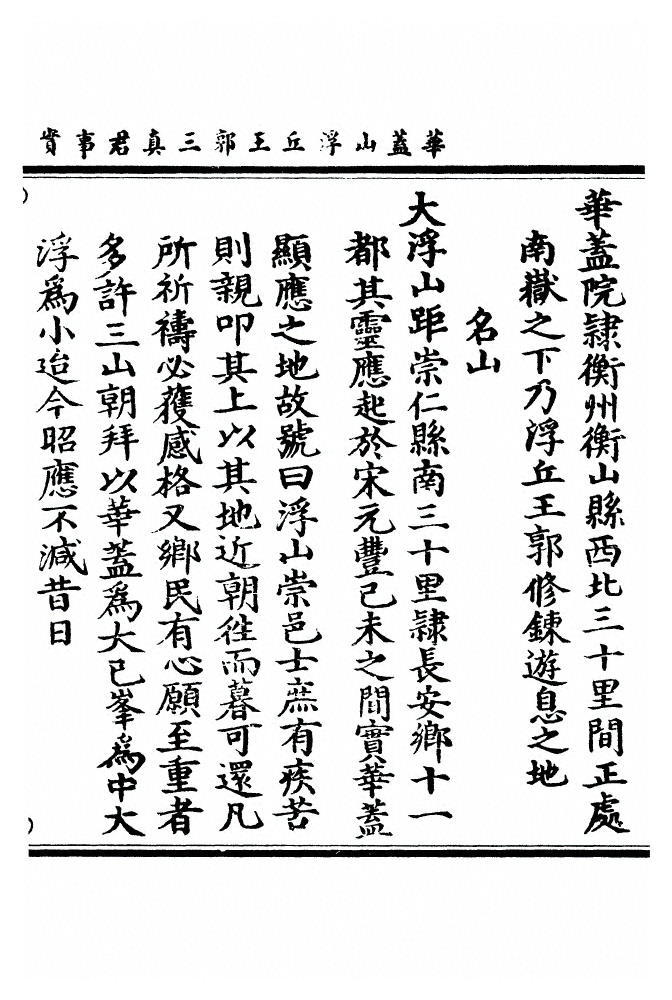 華蓋山浮丘王郭三真君事實
華蓋院隸衡州衡山縣西北三十里間正處
南嶽之下乃浮丘王郭修鍊遊息之地
名山
大浮山距崇仁縣南三十里隸長安鄉十一
都其靈應起於宋元豐己未之間實華蓋
顯應之地故號曰浮山崇邑士庶有疾苦
則親叩其上以其地近朝徃而暮可還凡
所祈禱必獲感格又鄉民有心願至重者
多許三山朝拜以華蓋爲大巴峯爲中大
浮爲小迨今昭應不減昔日